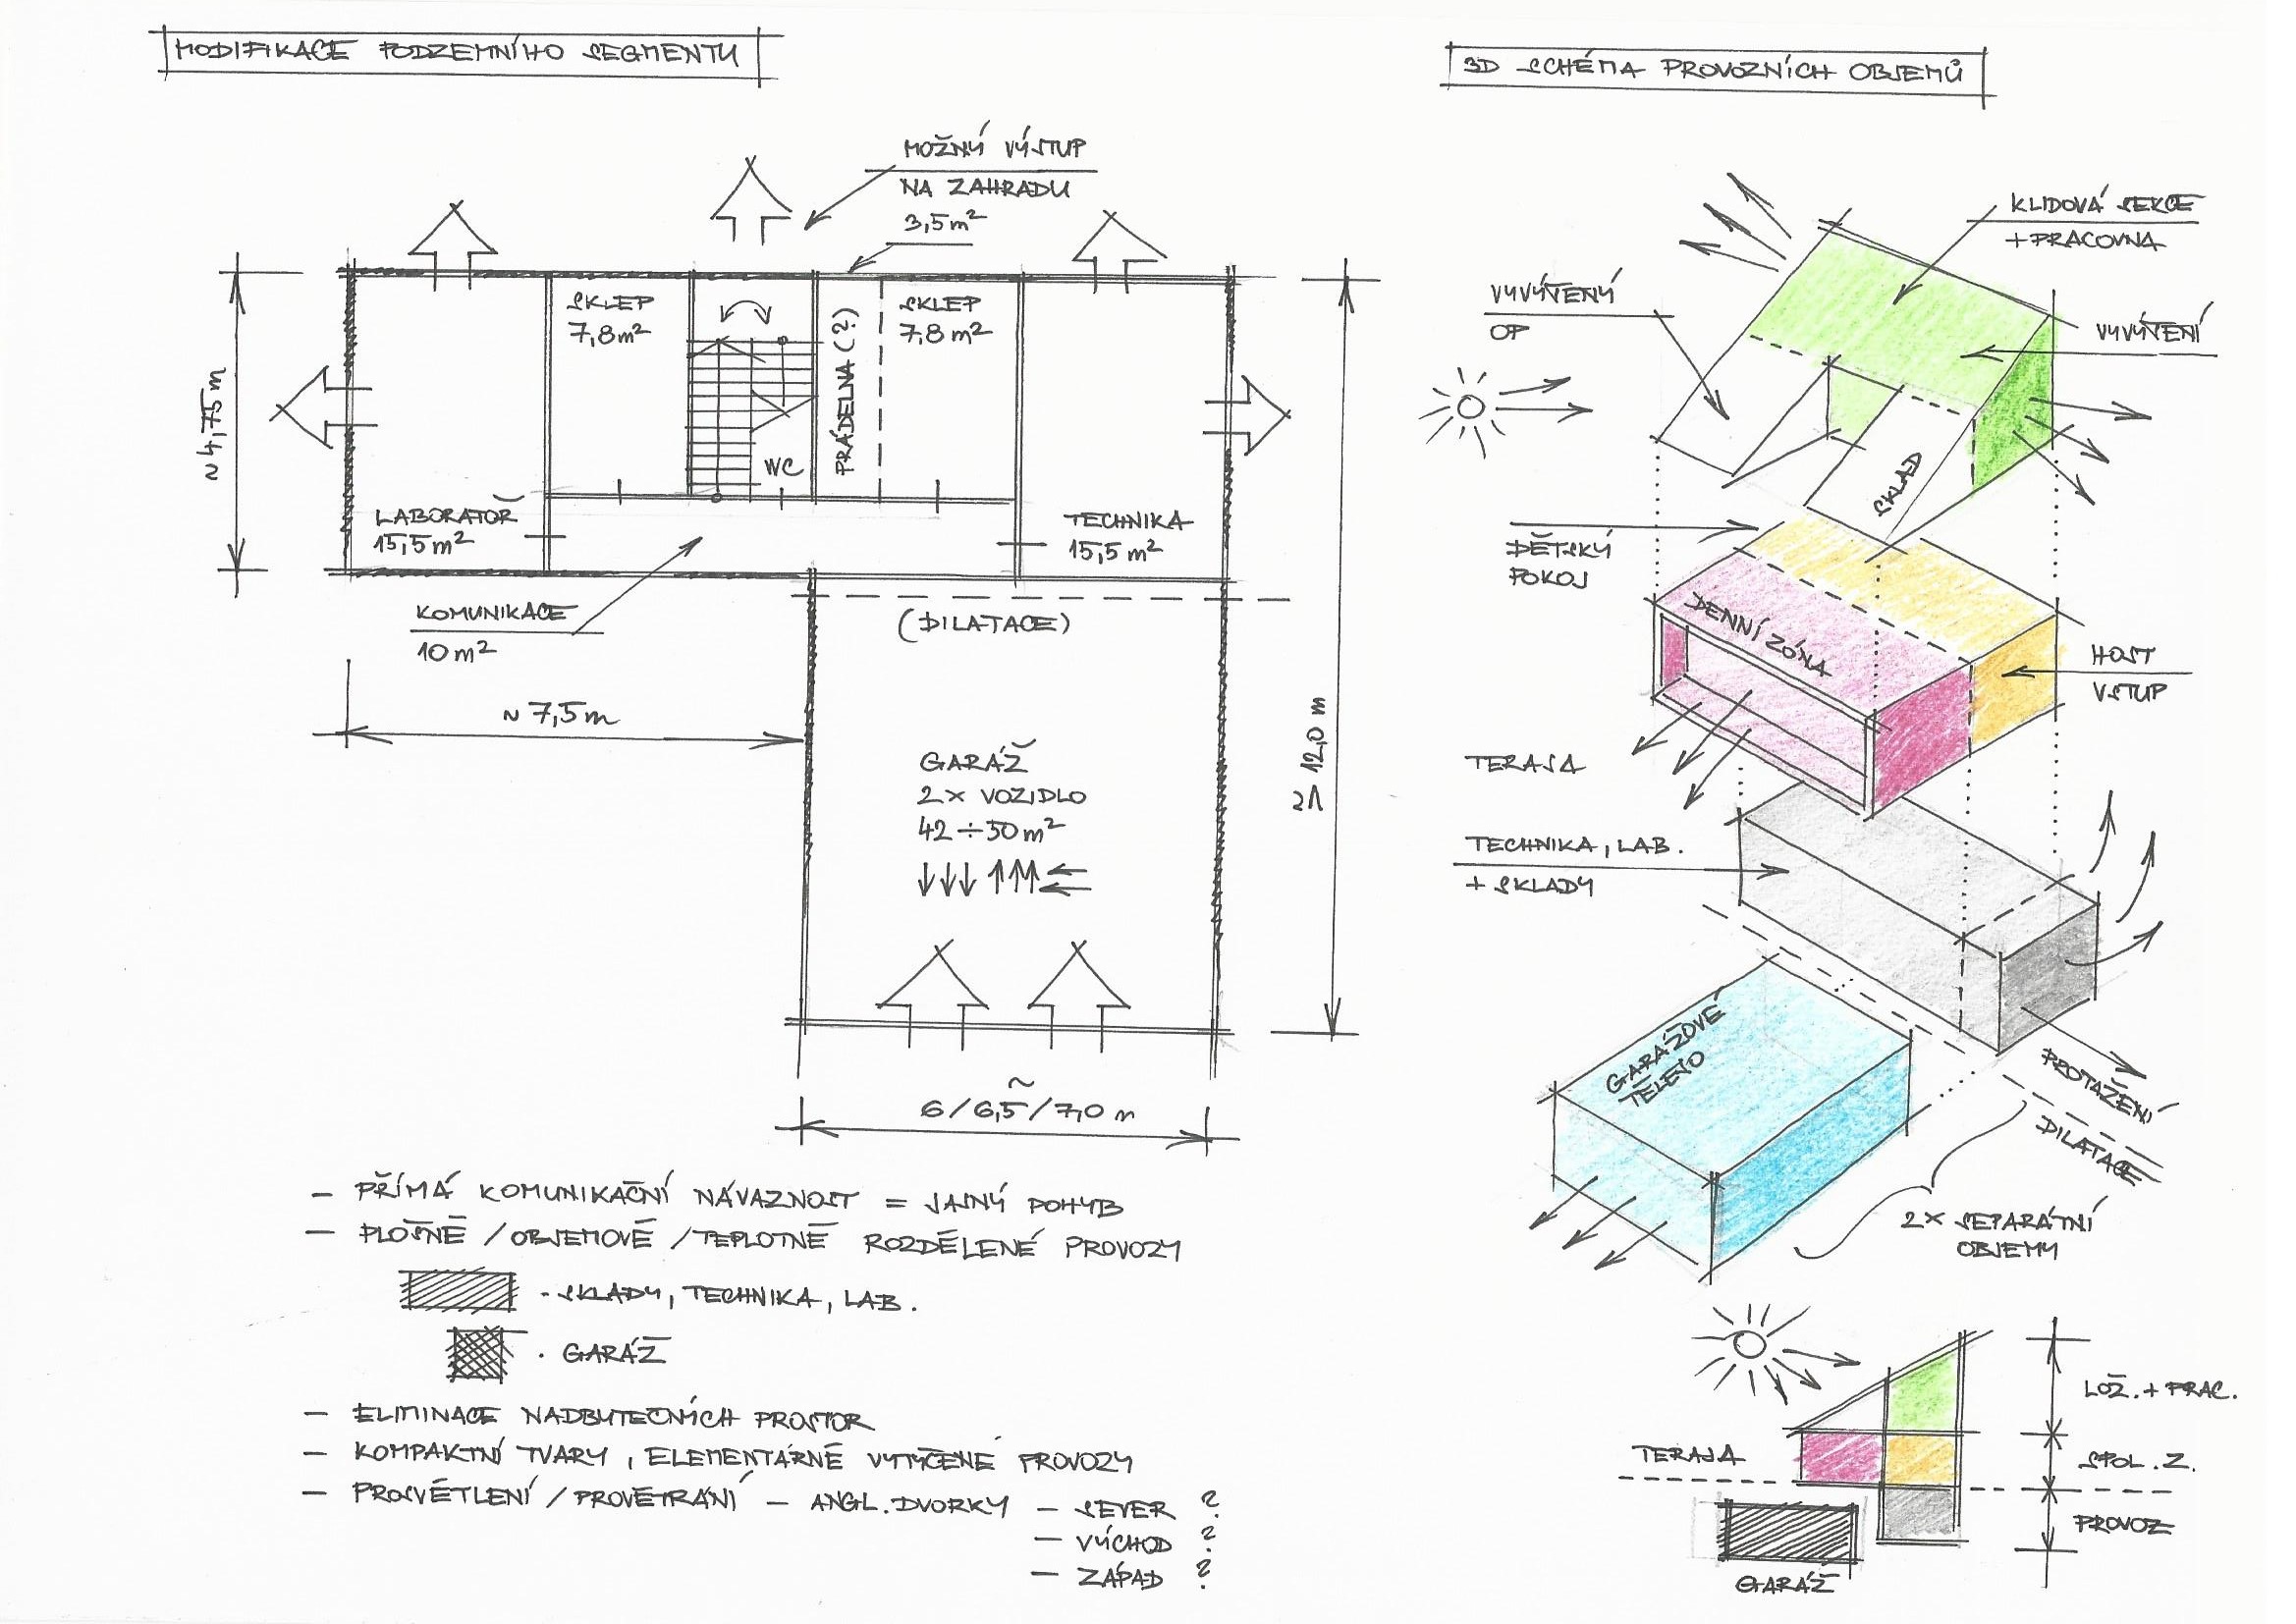 MODIFIKACE PODZEMNÍHO SEGMENTU
MOŽNÝ VÝSTUP
NA ZAHRADU
3,5m²
SKLEP
7,8m²
PRÁDELNA (?)
SKLEP
7,8m²
WC
~4,75m
LABORATOŘ
15,5m²
TECHNIKA
15,5m²
KOMUNIKACE
10m²
(DILATACE)
~7,5m
≥12,0m
GARÁŽ
2× VOZIDLO
42÷50m²
6/6,5/7,0m
– PŘÍMÁ KOMUNIKAČNÍ NÁVAZNOST = JASNÝ POHYB
– PLOŠNĚ/OBJEMOVĚ/TEPLOTNĚ ROZDĚLENÉ PROVOZY
- SKLADY, TECHNIKA, LAB.
- GARÁŽ
– ELIMINACE NADBYTEČNÍCH PROSTOR
– KOMPAKTNÍ TVARY, ELEMENTÁRNĚ VYTYČENÉ PROVOZY
– PROSVĚTLENÍ/PROVĚTRÁNÍ – ANGL. DVORKY – SEVER ?
– VÝCHOD ?
– ZÁPAD ?
3D SCHÉMA PROVOZNÍCH OBJEMŮ
KLIDOVÁ SEKCE
+PRACOVNA
VYVÝŠENÝ
OP
VYVÝŠENÍ
SKLAD
DĚTSKÝ
POKOJ
DENNÍ ZÓNA
HOST
VSTUP
TERASA
TECHNIKA, LAB.
+ SKLADY
GARÁŽOVÉ
TĚLESO
PROTAŽENÍ
DILATACE
2× SEPARÁTNÍ
OBJEMY
LOŽ.+PRAC.
TERASA
SPOL. Z.
PROVOZ
GARÁŽ